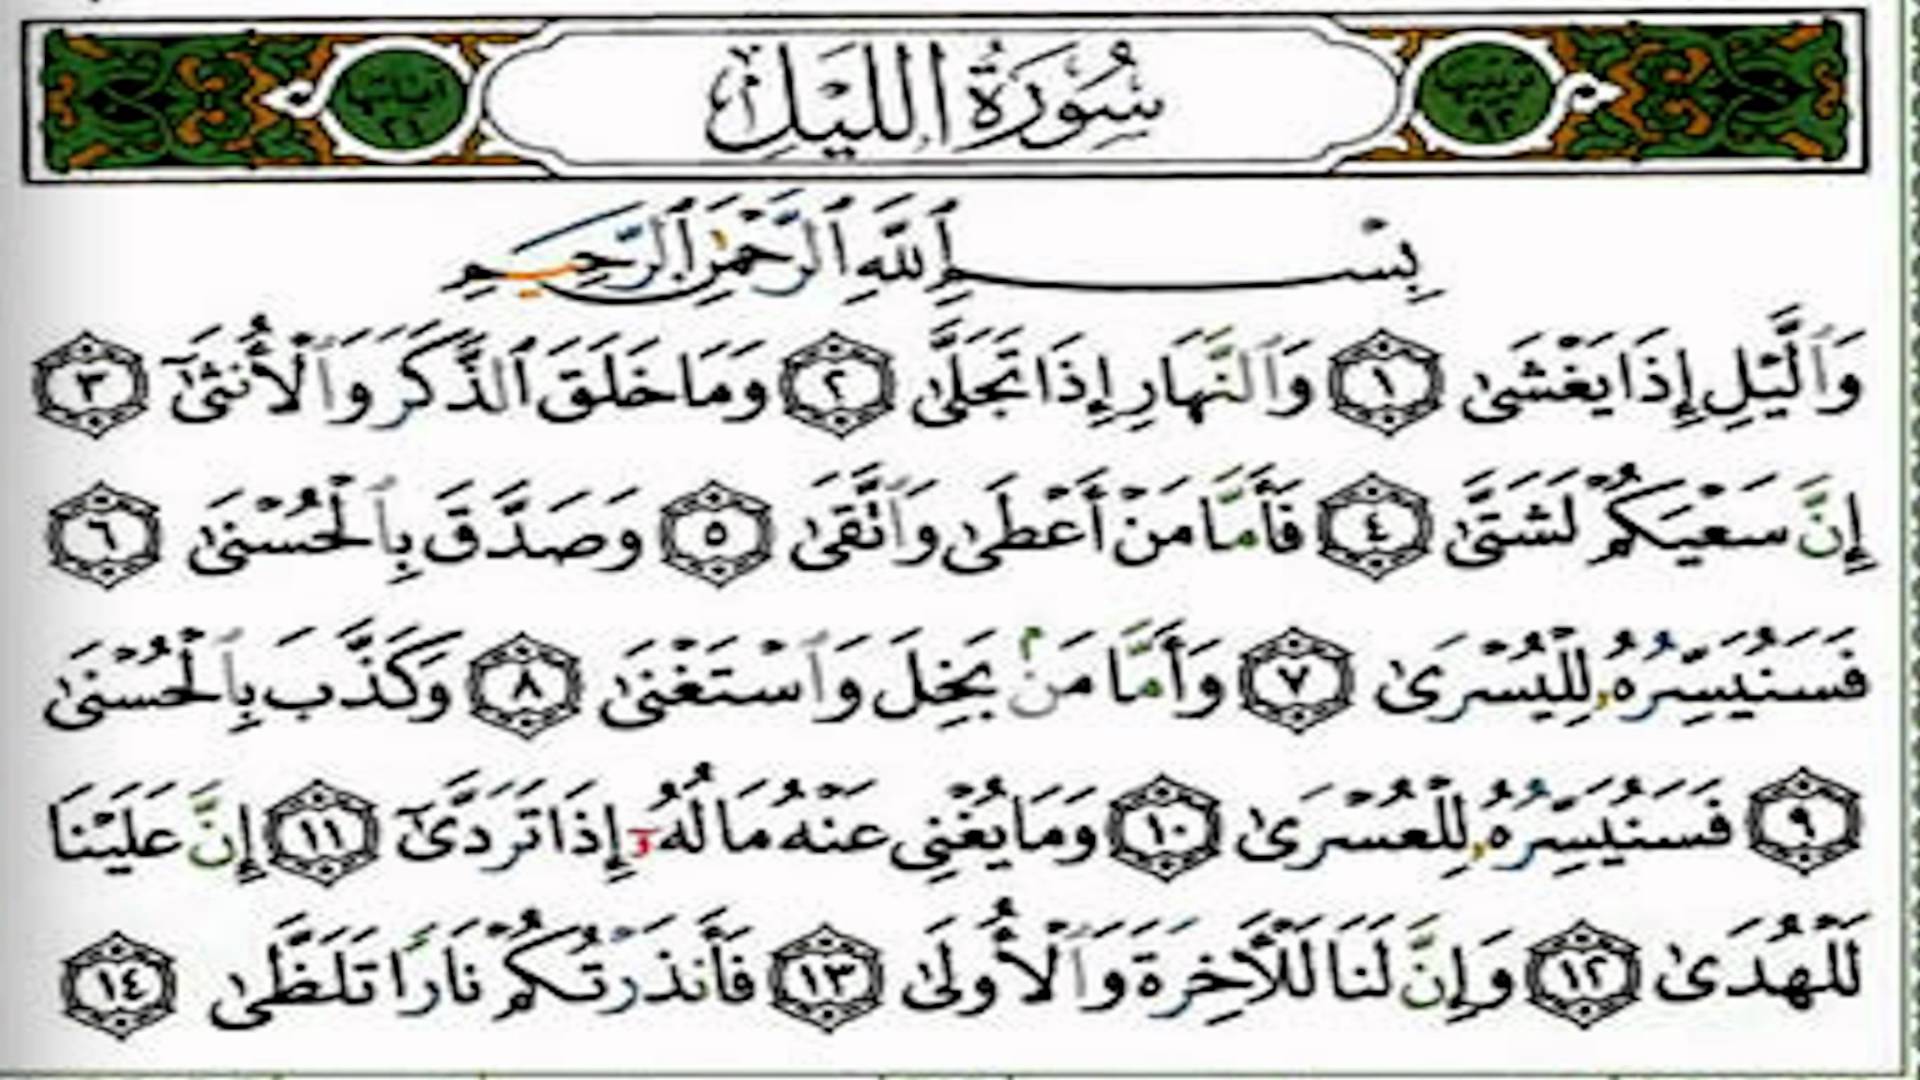 سُورَةُ اللَّيْلِ
ترتيبها ٩٢
آياتها ٢١
بِسْمِ ٱللَّهِ ٱلرَّحْمَٰنِ ٱلرَّحِيمِ
وَٱلَّيْلِ إِذَا يَغْشَىٰ ١ وَٱلنَّهَارِ إِذَا تَجَلَّىٰ ٢ وَمَا خَلَقَ ٱلذَّكَرَ وَٱلْأُنثَىٰٓ ٣
إِنَّ سَعْيَكُمْ لَشَتَّىٰ ٤ فَأَمَّا مَنْ أَعْطَىٰ وَٱتَّقَىٰ ٥ وَصَدَّقَ بِٱلْحُسْنَىٰ ٦
فَسَنُيَسِّرُهُۥ لِلْيُسْرَىٰ ٧ وَأَمَّا مَنۢ بَخِلَ وَٱسْتَغْنَىٰ ٨ وَكَذَّبَ بِٱلْحُسْنَىٰ
٩ فَسَنُيَسِّرُهُۥ لِلْعُسْرَىٰ ١٠ وَمَا يُغْنِى عَنْهُ مَالُهُۥٓ إِذَا تَرَدَّىٰٓ ١١ إِنَّ عَلَيْنَا
لَلْهُدَىٰ ١٢ وَإِنَّ لَنَا لَلْءَاخِرَةَ وَٱلْأُولَىٰ ١٣ فَأَنذَرْتُكُمْ نَارًا تَلَظَّىٰ ١٤